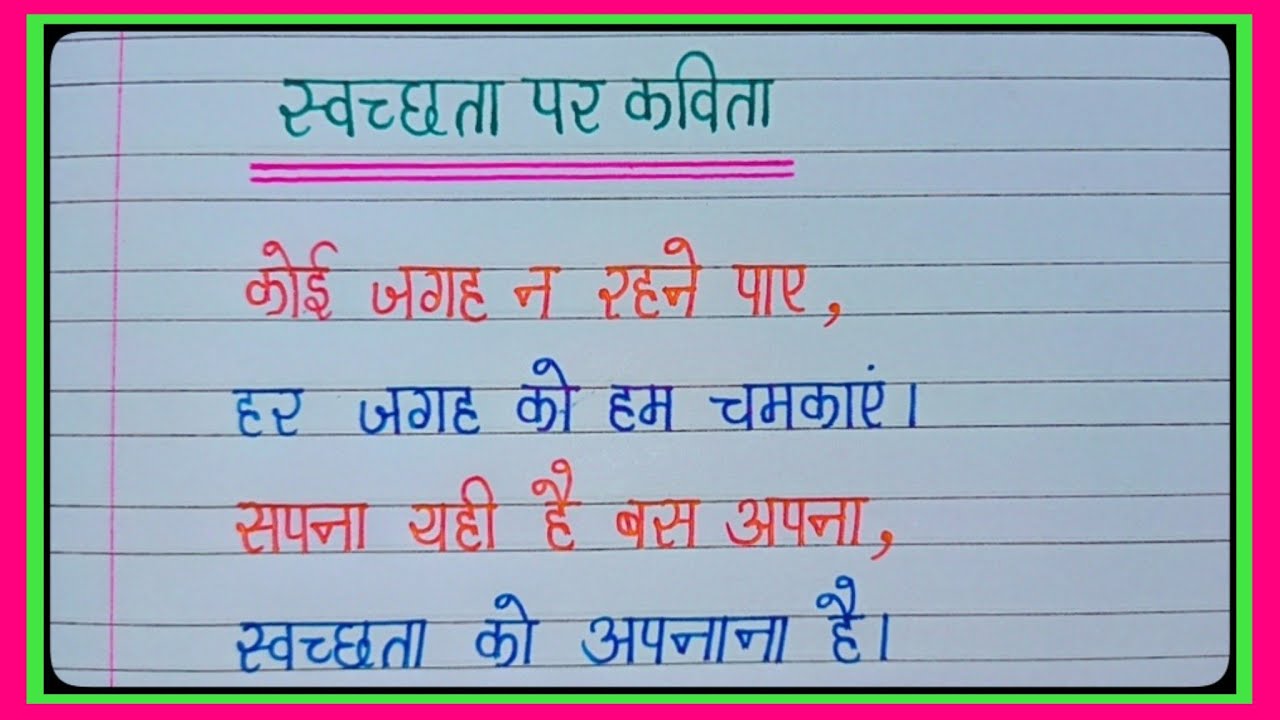 स्वच्छता पर कविता
कोई जगह न रहने पाए,
हर जगह को हम चमकाएं।
सपना यही है बस अपना,
स्वच्छता को अपनाना है।